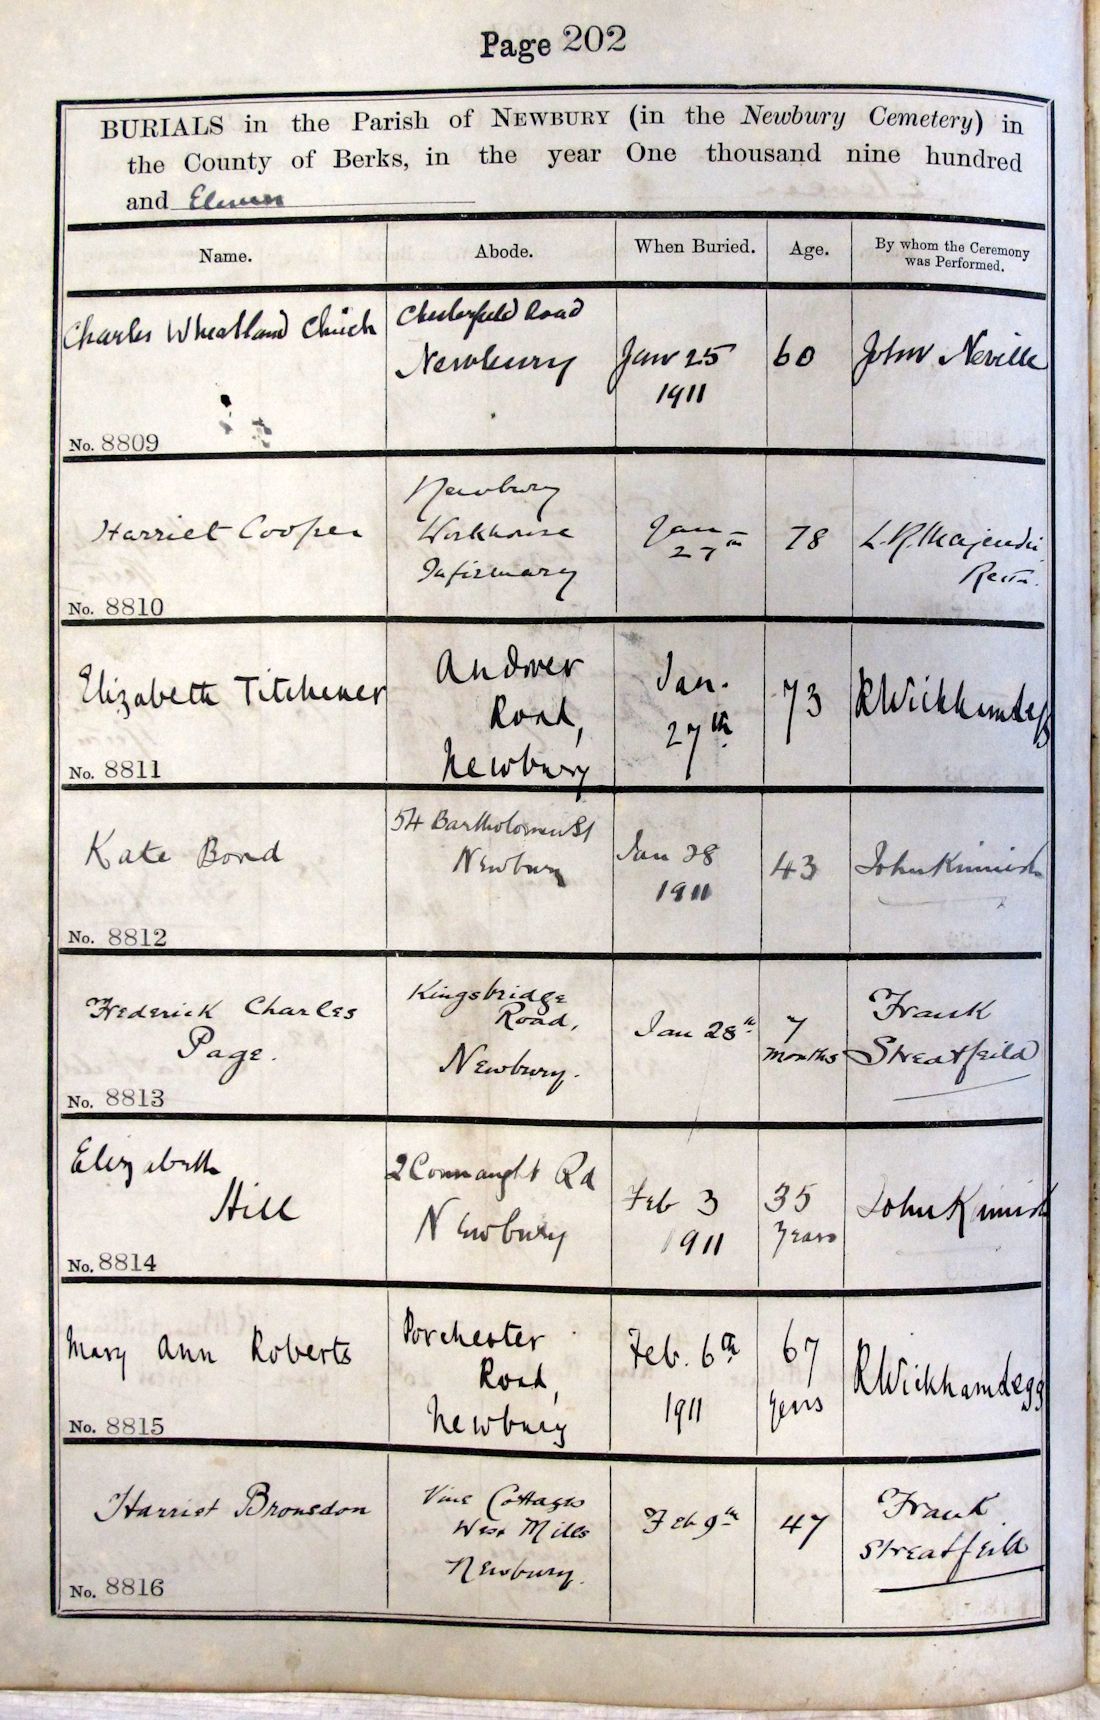 Page 202
BURIALS in the Parish of NEWBURY (in the Newbury Cemetery) in
the County of Berks, in the year One thousand nine hundred
and Eleven
Name. Abode. When Buried. Age. By whom the Ceremony
was Performed.
Charles Wheatland Chuck
Chesterfield Road
Newbury
Jan 25
1911
60
John Neville
No. 8809
Harriet Cooper
Newbury
Workhouse
Infirmary
Jan
27th
78
L. R. Majendie
Rector.
No. 8810
Elizabeth Titchener
Andover
Road,
Newbury
Jan.
27th
73
R Wickham Legg
No. 8811
Kate Bond
54 Bartholomew St
Newbury
Jan 28
1911
43
John Kinnish
No. 8812
Frederick Charles
Page.
Kingsbridge
Road,
Newbury.
Jan 28th
7
months
Frank
Streatfeild
No. 8813
Elizabeth
Hill
2 Connaught Rd
Newbury
Feb 3
1911
35
years
John Kinnish
No. 8814
Mary Ann Roberts
Porchester
Road,
Newbury
Feb. 6th
1911
67
years
R Wickham Legg
No. 8815
Harriet Bronsdon
Vine Cottages
West Mills
Newbury.
Feb 9th
47
Frank
Streatfeild
No. 8816